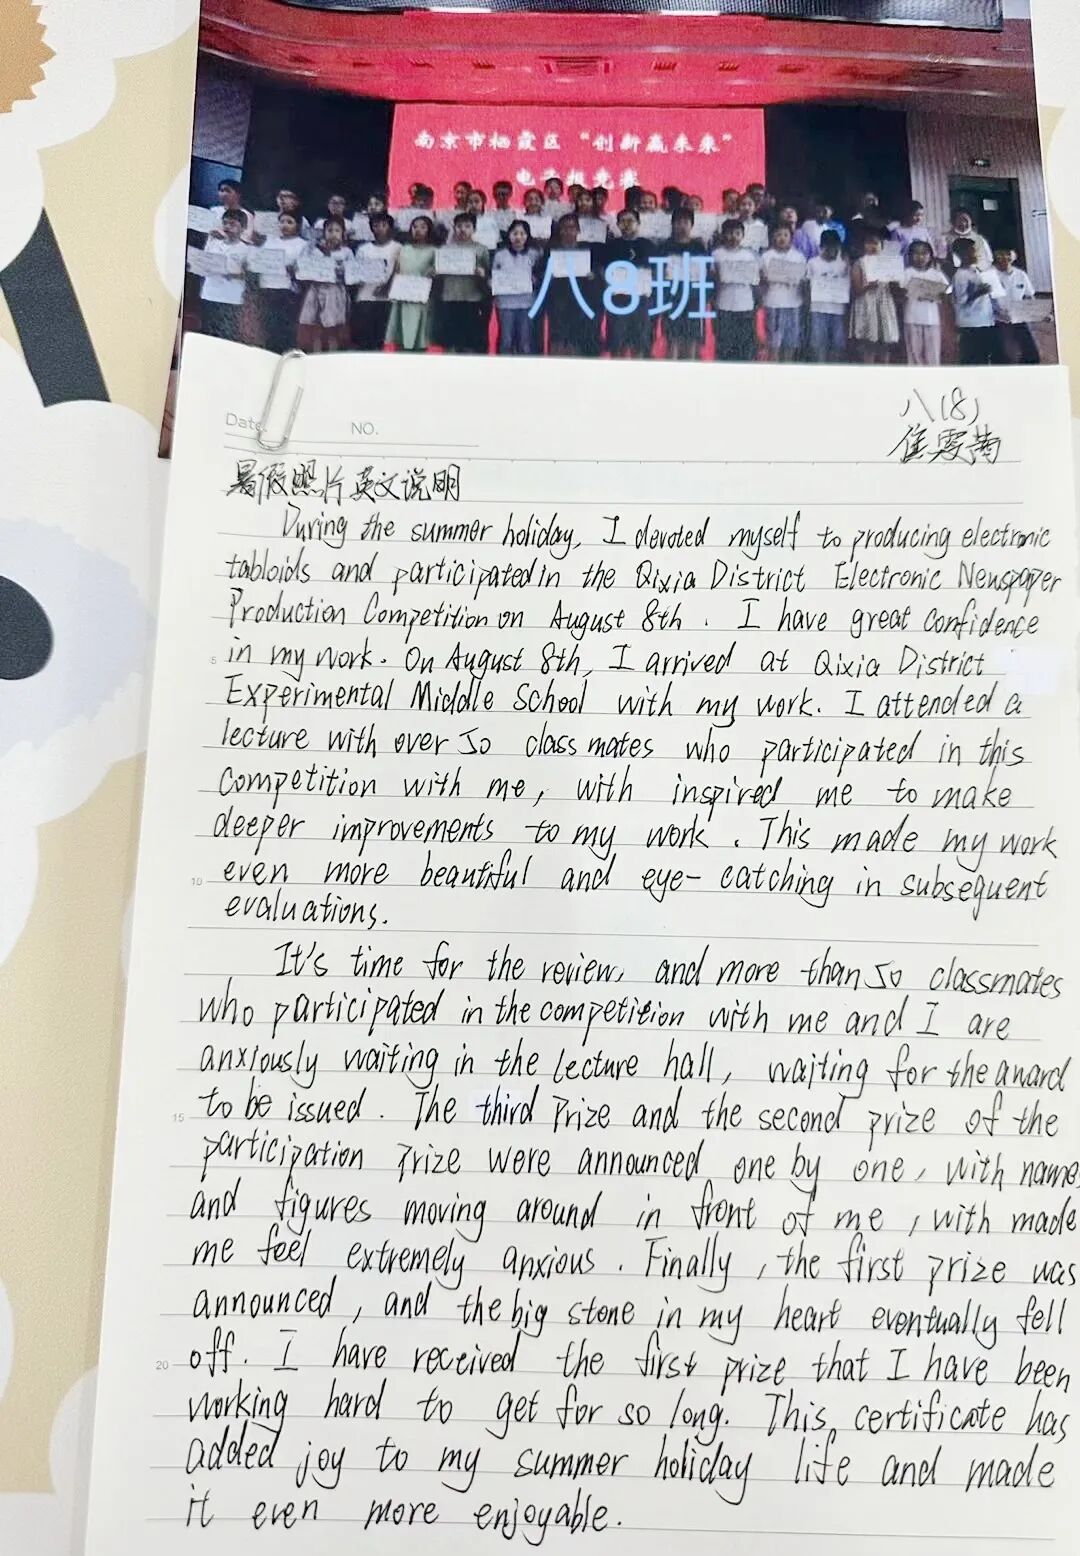 南京市栖霞区“创新赢未来”
电子报竞赛
八8班
Date
NO.
八(8)
暑假照片英文说明
During the summer holiday, I devoted myself to producing electronic
tabloids and participated in the Qixia District Electronic Newspaper
Production Competition on August 8th. I have great confidence
5 in my work. On August 8th, I arrived at Qixia District
Experimental Middle School with my work. I attended a
lecture with over 50 classmates who participated in this
competition with me, with inspired me to make
deeper improvements to my work. This made my work
10 even more beautiful and eye-catching in subsequent
evaluations.
It's time for the review, and more than 50 classmates
who participated in the competition with me and I are
anxiously waiting in the lecture hall, waiting for the award
15 to be issued. The third prize and the second prize of the
participation prize were announced one by one, with name
and figures moving around in front of me, with made
me feel extremely anxious. Finally, the first prize was
announced, and the big stone in my heart eventually fell
20 off. I have received the first prize that I have been
working hard to get for so long. This certificate has
added joy to my summer holiday life and made
it even more enjoyable.